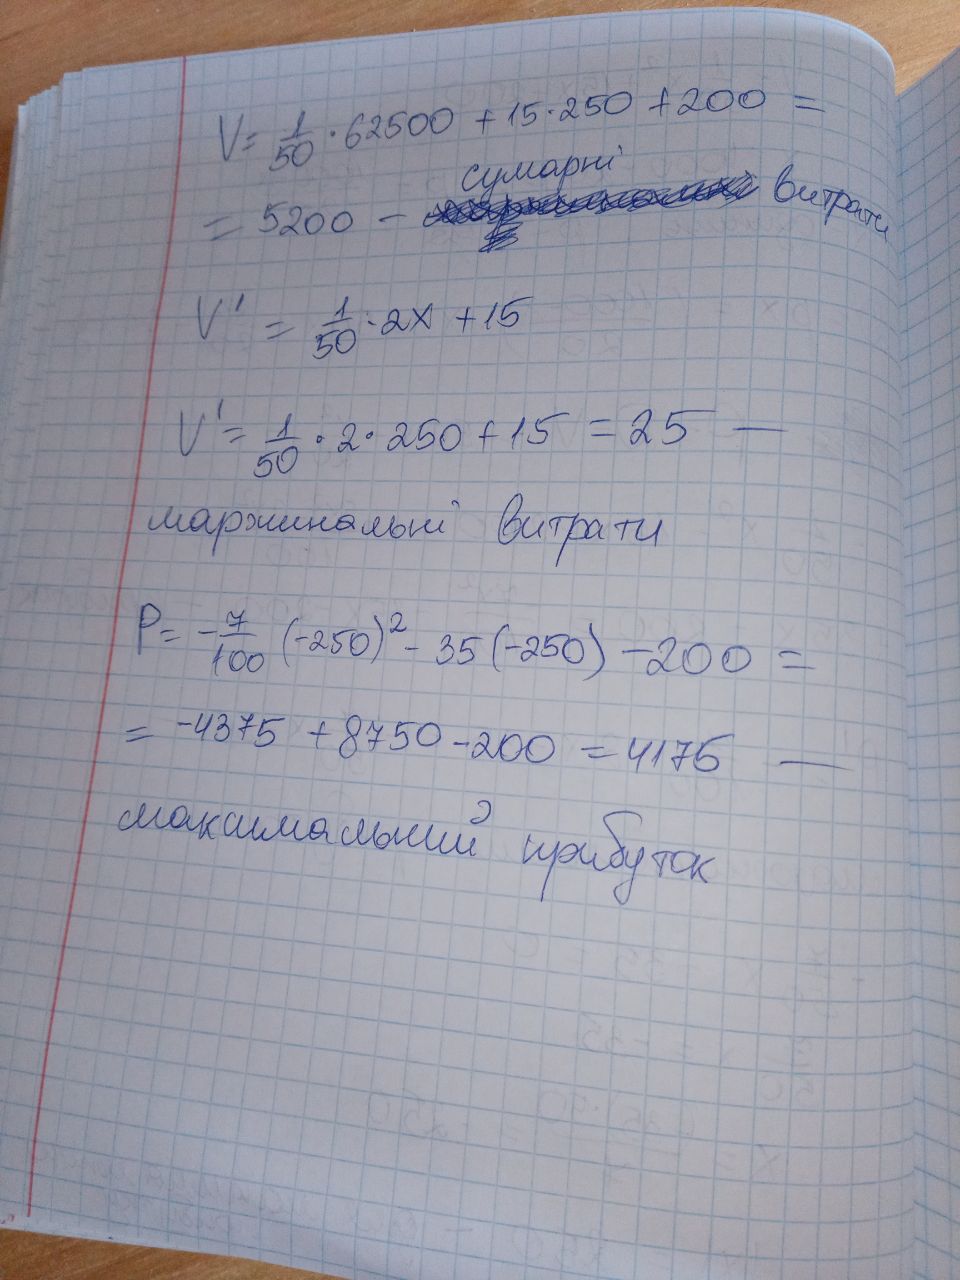 V = 1/50 · 62500 + 15 · 250 + 200 =
сумарні
= 5200 – витрати
V' = 1/50 · 2x + 15
V' = 1/50 · 2 · 250 + 15 = 25 —
маржинальні витрати
P = -7/100 (-250)² - 35 (-250) - 200 =
= -4375 + 8750 - 200 = 4175 —
максимальний прибуток